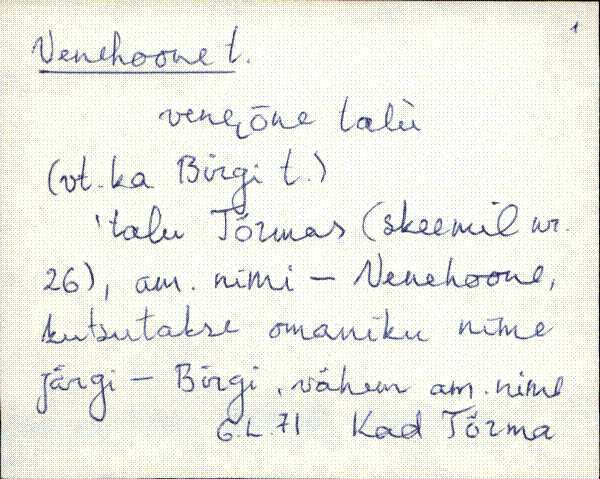 1
Venehoone t.
veneōne talù
(vt. ka Bürgi t.)
'talu Tõrmas (skeemil nr.
26), am. nimi – Venehoone,
kutsutakse omaniku nime
järgi – Bürgi, vähem am. nime
G.L. 71 Kad Tõrma